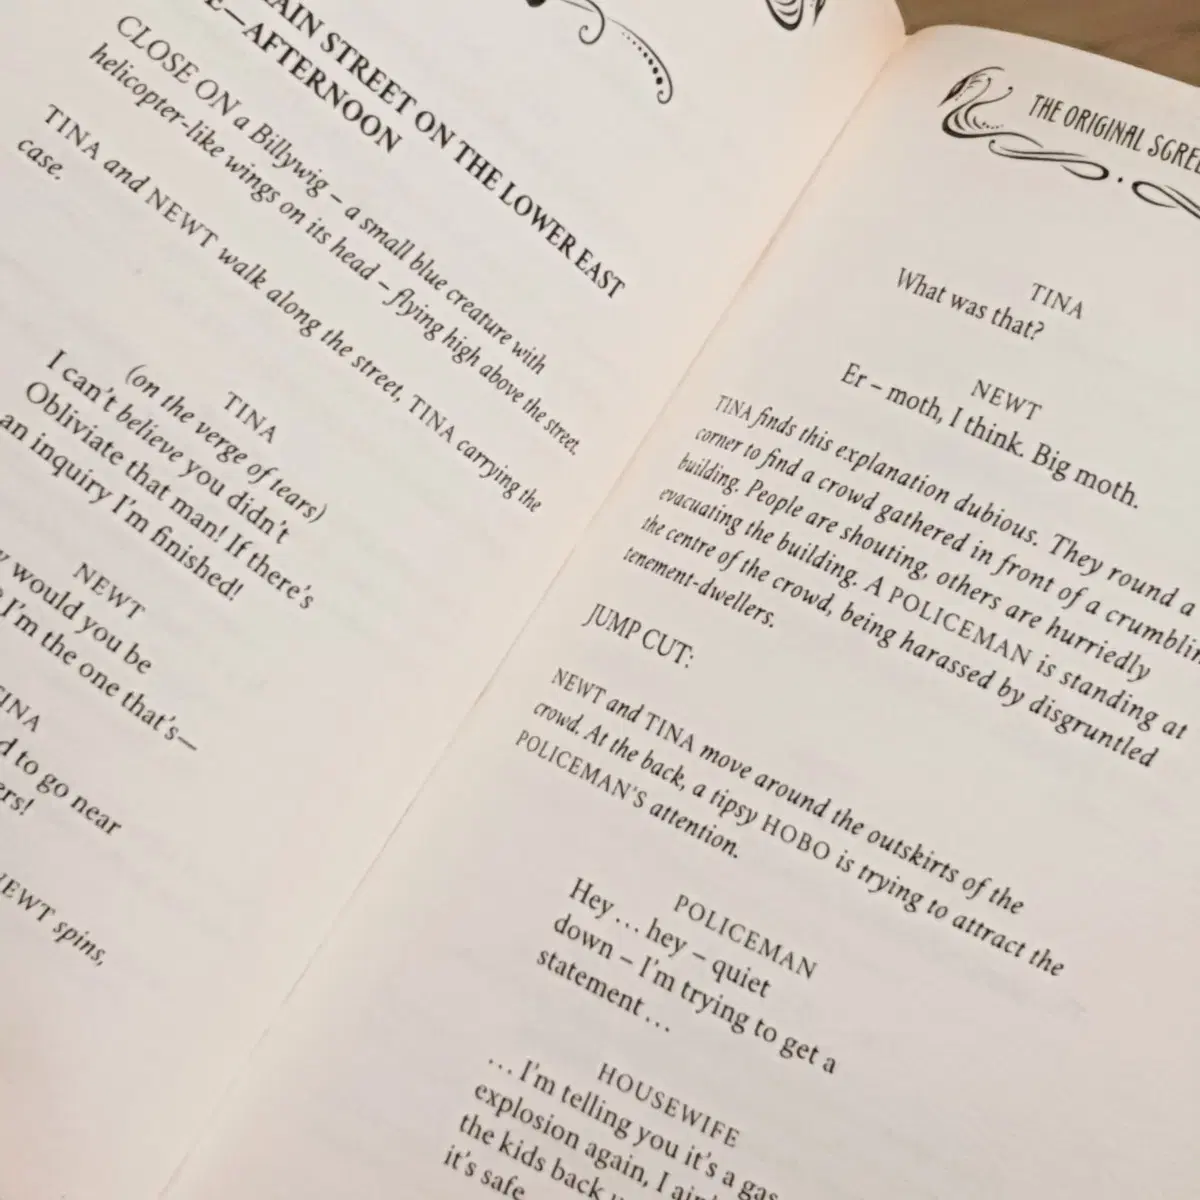 AIN STREET ON THE LOWER EAST
E—AFTERNOON
CLOSE ON a Billywig – a small blue creature with
helicopter-like wings on its head – flying high above the street.
TINA and NEWT walk along the street, TINA carrying the
case.
TINA
(on the verge of tears)
I can't believe you didn't
Obliviate that man! If there's
an inquiry I'm finished!
NEWT
would you be
I'm the one that's—
TINA
d to go near
ers!
NEWT spins,
THE ORIGINAL SCREE
TINA
What was that?
NEWT
Er – moth, I think. Big moth.
TINA finds this explanation dubious. They round a
corner to find a crowd gathered in front of a crumblin
building. People are shouting, others are hurriedly
evacuating the building. A POLICEMAN is standing at
the centre of the crowd, being harassed by disgruntled
tenement-dwellers.
JUMP CUT:
NEWT and TINA move around the outskirts of the
crowd. At the back, a tipsy HOBO is trying to attract the
POLICEMAN'S attention.
POLICEMAN
Hey ... hey – quiet
down – I'm trying to get a
statement ...
HOUSEWIFE
... I'm telling you it's a gas
explosion again, I ain't
the kids back
it's safe